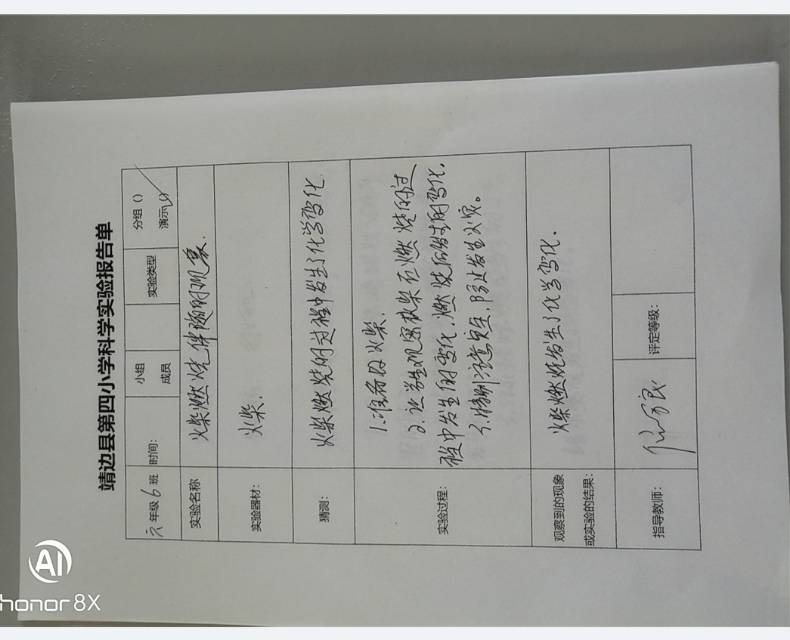 靖边县第四小学科学实验报告单
六年级 6 班 时间： 小组成员 实验类型 分组（）
演示（√）
实验名称 火柴燃烧伴随的现象.
实验器材： 火柴.
猜测： 火柴燃烧的过程中发生了化学变化
实验过程： 1.准备好火柴.
2.让学生观察火柴在燃烧的过
程中发生的变化.燃烧后发生的变化.
3.特别注意安全,防止发生火灾。
观察到的现象
或实验的结果： 火柴燃烧发生了化学变化.
指导教师： 评定等级：
AI
honor 8X